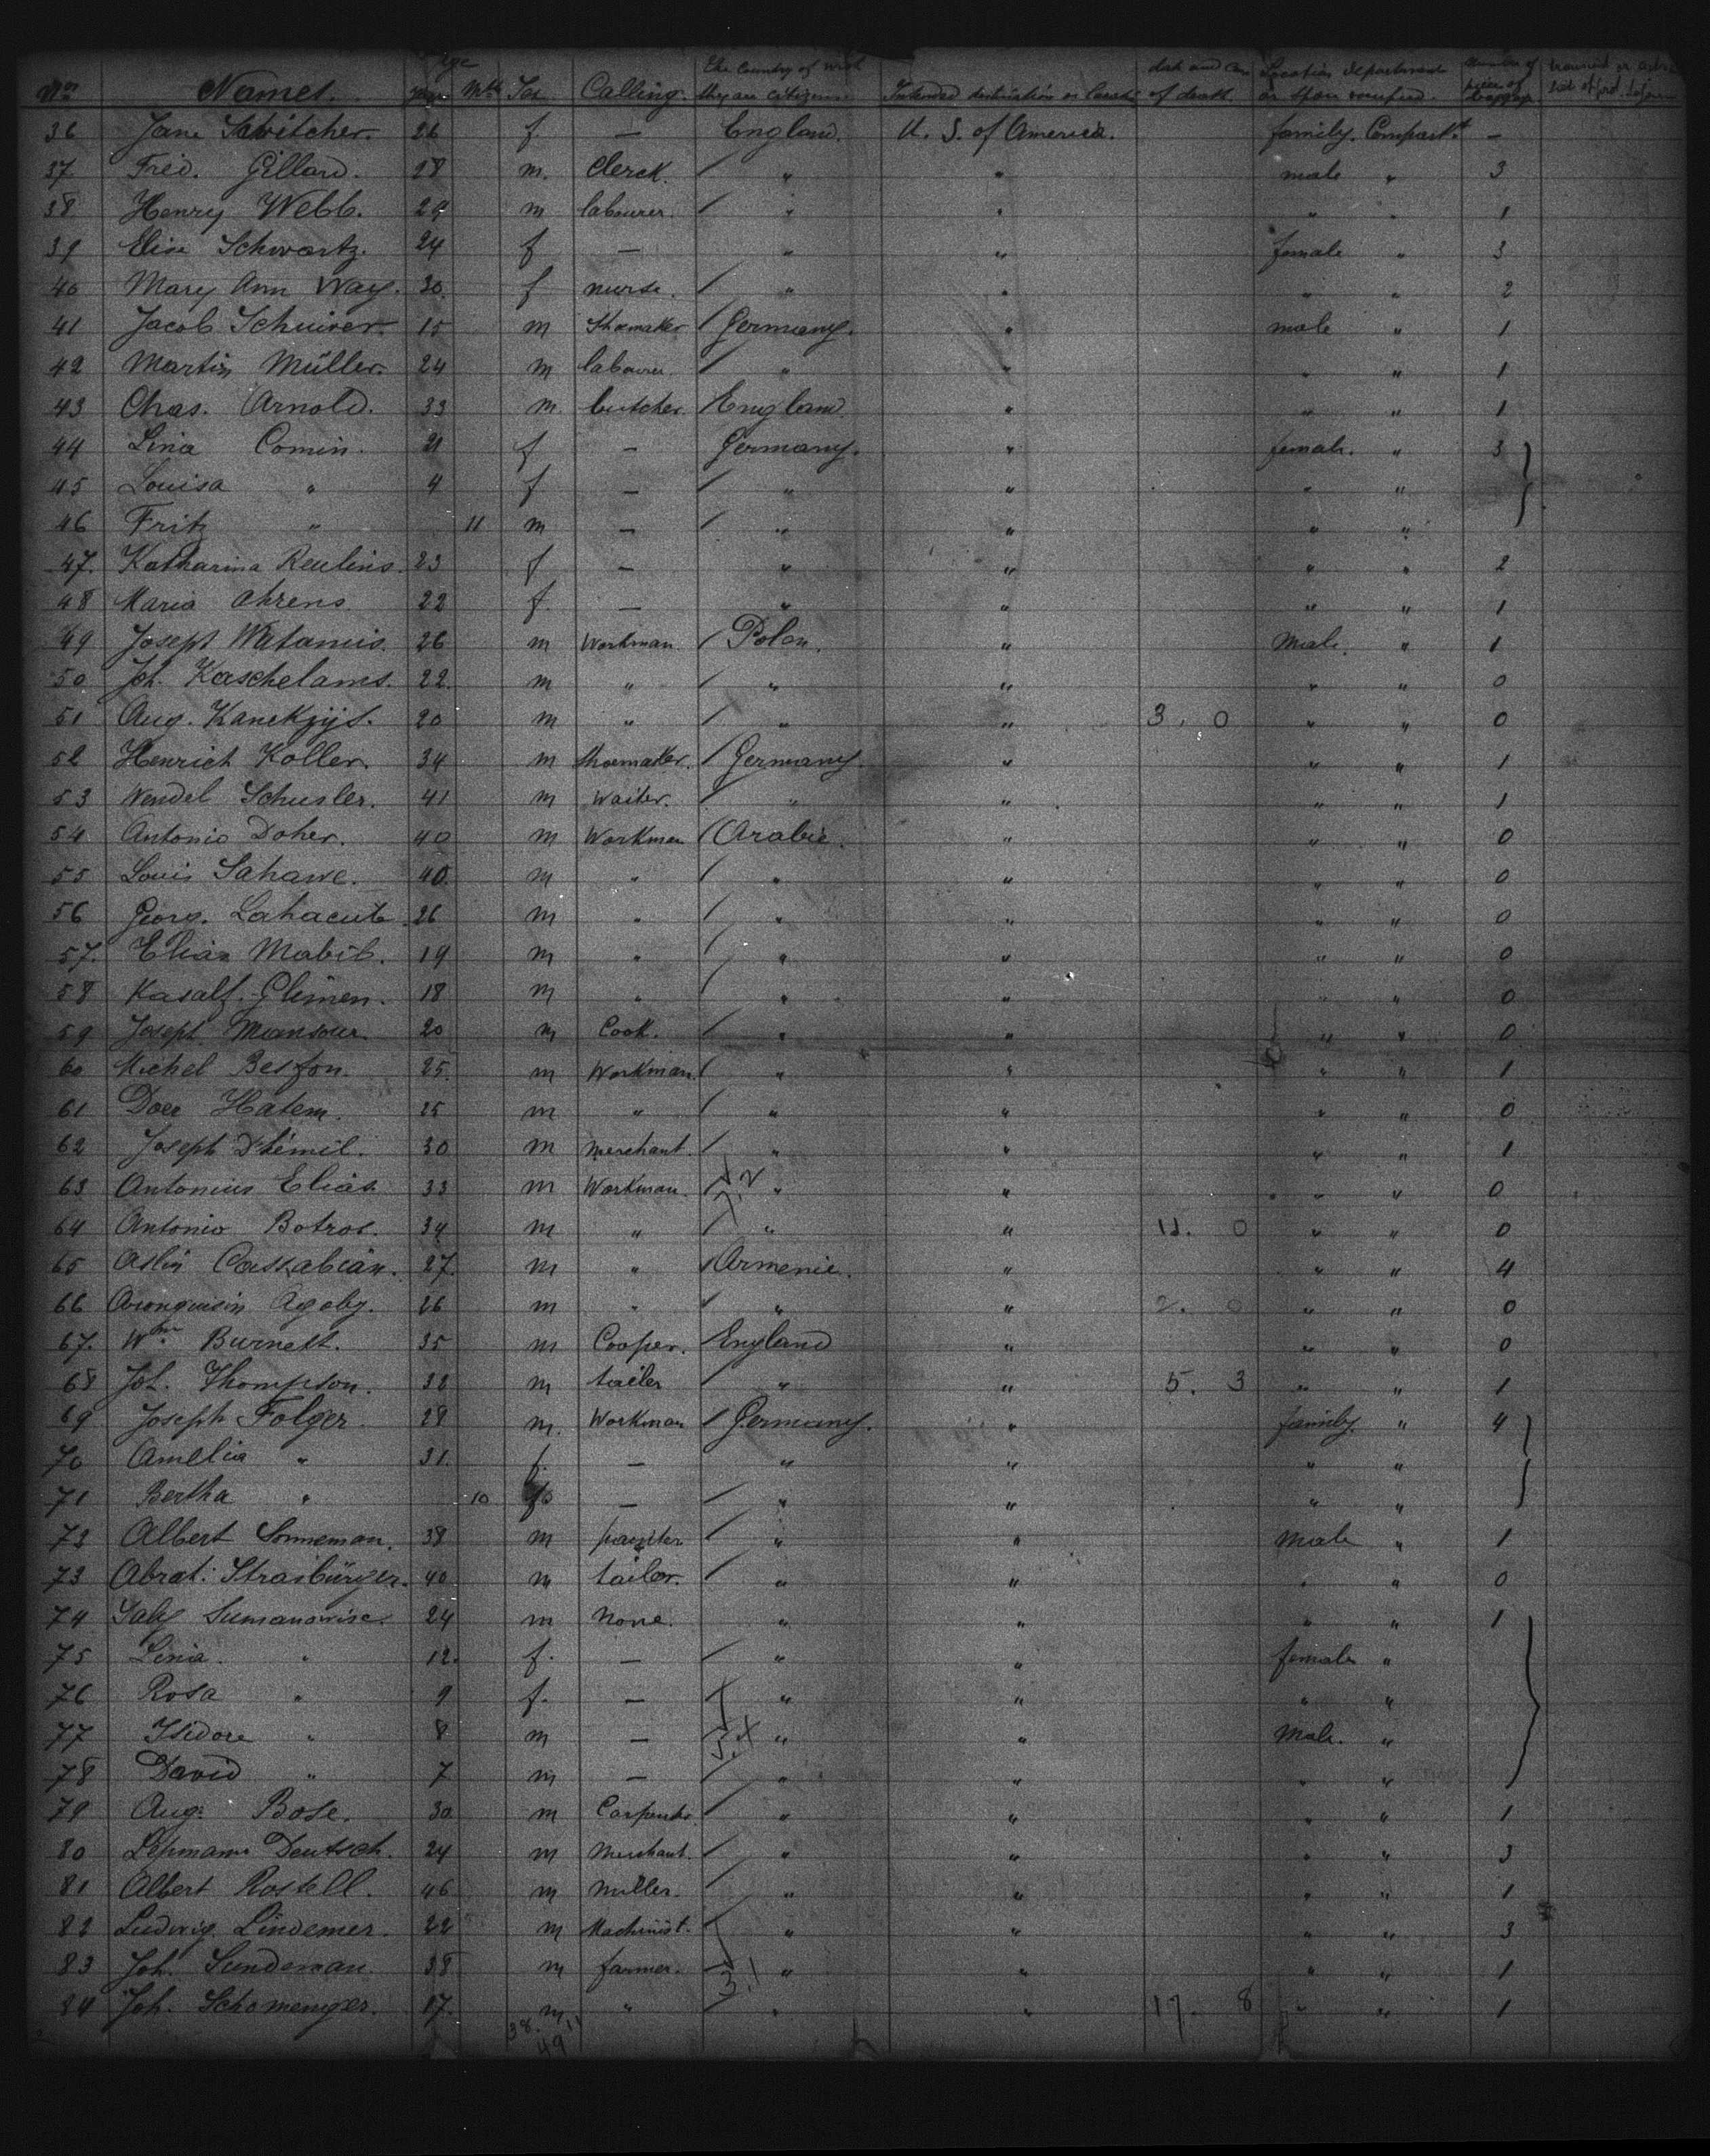 Nos Names. Age years Mths Sex Calling. The Country of wich they are citizens. Intended destination or location date and cause of death. Location departement or space occupied. Number of pieces of baggage
36 Jane Sawitcher. 26 f. — England. U. S. of America. family. Compartt —
37 Fred. Gillard. 28 m. Clerck. / " " male " 3
38 Henry Webb. 24 m labourer. / " " " " 1
39 Elise Schwartz. 24 f — " " female " 3
40 Mary Ann Way. 30. f nurse. / " " " " 2
41 Jacob Schuiver. 15 m Shoemaker / Germany. " male " 1
42 Martin Müller. 24 m labourer. / " " " " 1
43 Chas. Arnold. 33 m. butcher. / England. " " " 1
44 Lina Comin. 21 f — Germany. " female. " 3
45 Louisa " 4 f — / " " " "
46 Fritz " 11 m — / " " " "
47. Katharina Reulins. 23 f — " " " " 2
48 Maria Ahrens. 22 f. — " " " " 1
49 Joseph Watancis. 26 m Workman / Polen. " Male. " 1
50 Joh. Kaschelams. 22. m " / " " " " 0
51 Aug. Kanekzijs. 20 m " / " " 3. 0 " " 0
52 Henrich Koller. 34 m shoemaker. / Germany. " " " 1
53 Wendel Schusler. 41 m Waiter. / " " " " 1
54 Antonio Doher. 40 m Workman / Arabie. " " " 0
55 Louis Sahawe. 40. m " / " " " " 0
56 Georg. Lahacub 26 m " / " " " " 0
57. Elias Mabib. 19 m " / " " " " 0
58 Kasalf. Glimen. 18 m " / " " " " 0
59 Joseph Mansour. 20 m Cook. / " " " " 0
60 Michel Besfon. 25. m Workman. / " " " " 1
61 Doer Hatem. 25 m " / " " " " 0
62 Joseph Dhémil. 30 m merchant. / " " " " 1
63 Antonius Elias 33 m Workman. / 7.2 " " " " 0
64 Antonio Botros. 34 m " / " " 11. 0 " " 0
65 Aslin Cassabian. 27. m " / Armenie. " " " 4
66 Agoby. 26 m " / " " 2. 0 " " 0
67. Wm Burnett. 35 m Cooper. / England " " " 0
68 Joh. Thompson. 32 m tailer / " " 5. 3 " " 1
69 Joseph Folger. 28 m. Workman / Germany. " family. " 4
70 Amelia " 31. f. — " " " "
71 Bertha " 10 f — / " " " "
72 Albert Sonneman. 38 m painter / " " Male " 1
73 Abrat: Strasbürger. 40 m tailor. / " " " " 0
74 Saly Sumanowisc. 24 m None. " " " " 1
75 Lina. " 12. f. — / " " female "
76 Rosa " 9 f. — / " " " "
77 Isidore " 8 m — / 5.X " " Male. "
78 David " 7 m — / " " " "
79 Aug. Bose. 30 m Carpenter / " " " " 1
80 Lipmann Deutsch. 24 m Merchant. / " " " " 3
81 Albert Rostell. 46 m Miller. / " " " " 1
82 Ludwig Lindemer. 22 m Machinist. / " " " " 3
83 Joh. Sundeman 38 m farmer. / 3.1 " " " " 1
84 Joh. Schomenger. 17. m " / " " 17. 8 " " 1
38. 11
49